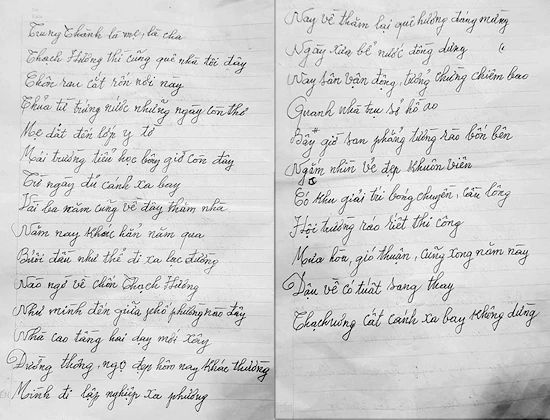 Trung Thành là mẹ, là cha
Thạch Hưởng thì cũng quê nhà tôi đây
Chôn rau cắt rốn nơi nay
Thủa từ trứng nước những ngày còn thơ
Mẹ dắt đến lớp y tờ
Mái trường tiểu học bây giờ còn đây
Từ ngày đủ cánh xa bay
Vài ba năm cũng về đây thăm nhà
Năm nay khác hẳn năm qua
Bước đầu như thể đi xa lạc đường
Nào ngờ về chốn Thạch Hưởng
Như mình đến giữa phố phường nào đây
Nhà cao tầng hai dãy mới xây
Đường thông, ngõ đẹp hôm nay khác thường
Mình đi lập nghiệp xa phương
Nay về thăm lại quê hương đáng mừng
Ngày xưa bể nước đồng dưng
Nay sân vận động, tưởng chừng chiêm bao
Quanh nhà trụ sở hồ ao
Bây giờ san phẳng tường rào bốn bên
Ngắm nhìn vẻ đẹp khuôn viên
Có khu giải trí bóng chuyền, cầu lông
Hội trường ráo riết thi công
Mưa hòa, gió thuận, cũng xong năm này
Dậu về có tuất sang thay
Thạch Hưởng cất cánh xa bay không dừng